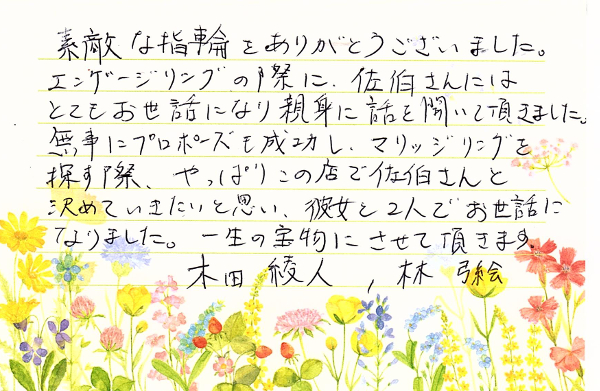 素敵な指輪をありがとうございました。
エンゲージリングの際に、佐伯さんには
とてもお世話になり親身に話を聞いて頂きました。
無事にプロポーズも成功し、マリッジリングを
探す際、やっぱりこの店で佐伯さんと
決めていきたいと思い、彼女と2人でお世話に
なりました。一生の宝物にさせて頂きます。
木田 綾人 , 林 弓絵